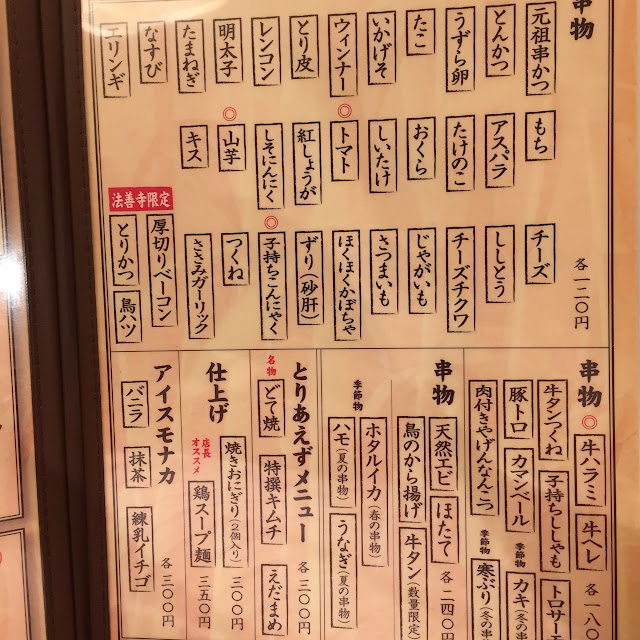 串物
元祖串かつ
とんかつ
うずら卵
たこ
いかげそ
ウィンナー
とり皮
レンコン
明太子
たまねぎ
なすび
エリンギ
もち
アスパラ
たけのこ
おくら
しいたけ
◎トマト
紅しょうが
しそにんにく
◎山芋
キス
チーズ
ししとう
チーズチクワ
じゃがいも
さつまいも
ほくほくかぼちゃ
ずり(砂肝)
◎子持ちこんにゃく
つくね
ささみガーリック
法善寺限定
厚切りベーコン
とりかつ
鳥ハツ
各一二〇円
串物
◎牛ハラミ
牛ヘレ
牛タンつくね
子持ちししゃも
トロサー
豚トロ
カマンベール
季節物
カキ(冬の串
肉付きやげんなんこつ
季節物
寒ぶり(冬の串
各一八
串物
天然エビ
ほたて
鳥のから揚げ
牛タン(数量限定
季節物
ホタルイカ(春の串物)
ハモ(夏の串物)
うなぎ(夏の串物)
各二四〇円
とりあえずメニュー
名物
どて焼
特撰キムチ
えだまめ
各三〇〇円
仕上げ
焼きおにぎり(2個入り)
三〇〇円
店長オススメ
鶏スープ麺
三五〇円
アイスモナカ
バニラ
抹茶
練乳イチゴ
各三〇〇円